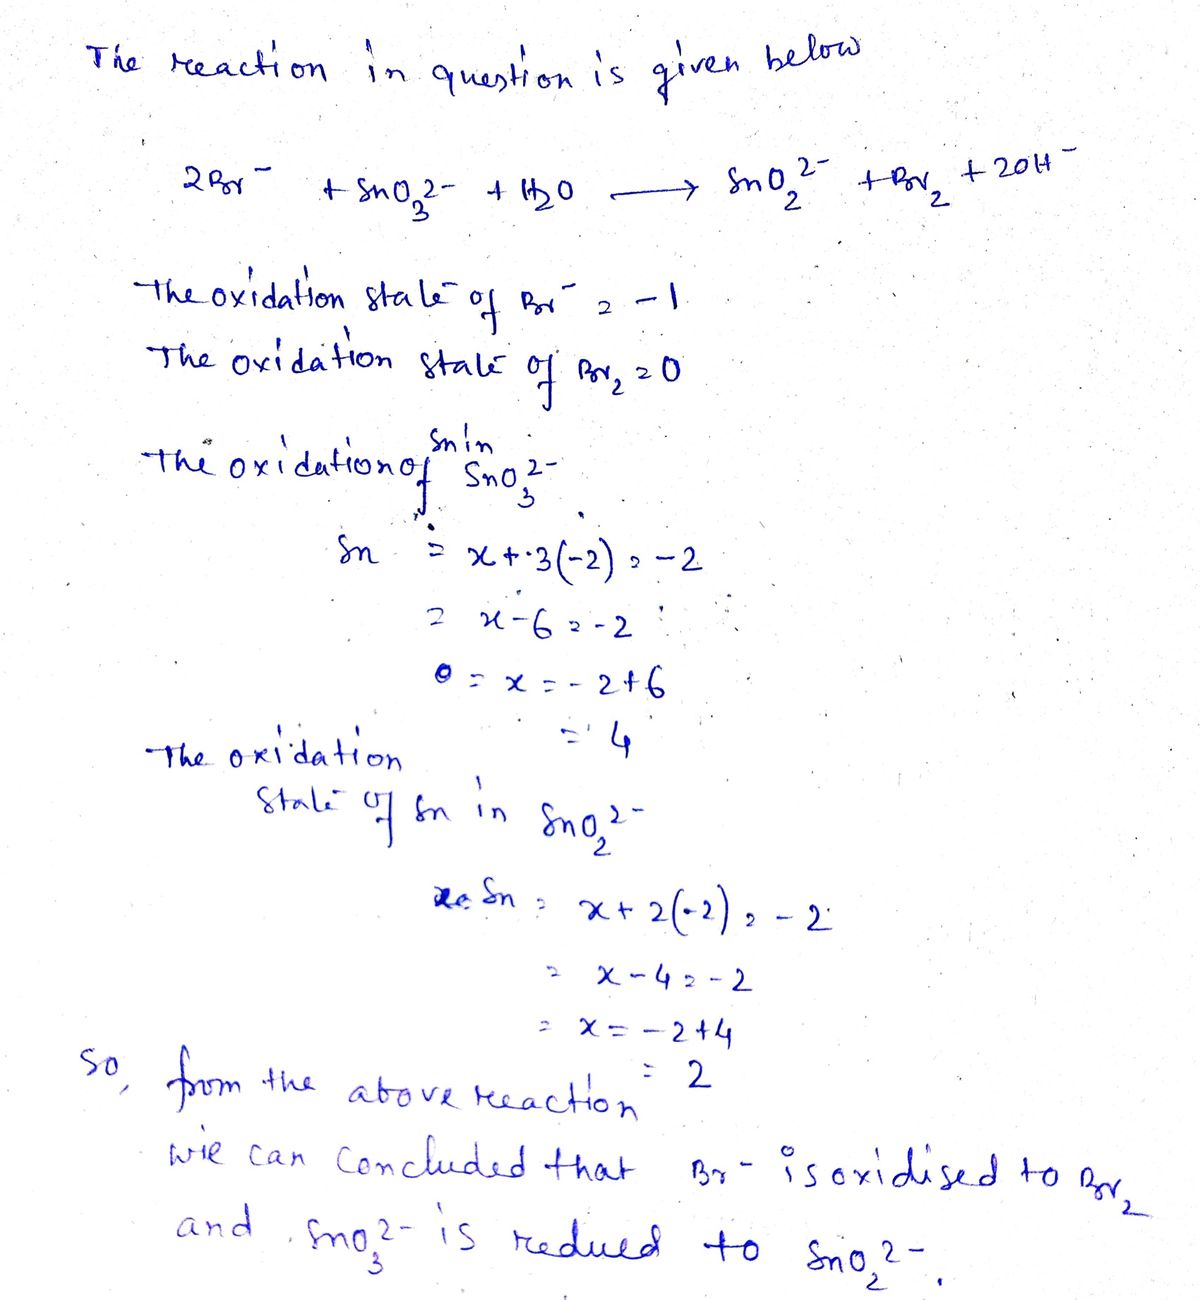 The reaction in question is given below
2Br⁻ + SnO₃²⁻ + H₂O ⟶ SnO₂²⁻ + Br₂ + 2OH⁻
The oxidation state of Br⁻ = -1
The oxidation state of Br₂ = 0
The oxidation of Sn in SnO₃²⁻
Sn = x + 3(-2) = -2
= x - 6 = -2
= x = -2+6
= 4
The oxidation
state of Sn in SnO₂²⁻
Sn = x + 2(-2) = -2
= x - 4 = -2
= x = -2+4
= 2
So, from the above reaction
we can concluded that Br⁻ is oxidised to Br₂
and SnO₃²⁻ is redued to SnO₂²⁻.